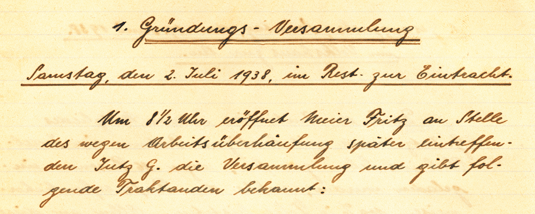 1. Gründungs-Versammlung
Samstag, den 2. Juli 1938, im Rest. zur Eintracht.
Um 8½ Uhr eröffnet Meier Fritz an Stelle
des wegen Arbeitsüberhäufung später eintreffen-
den Jutz G. die Versammlung und gibt fol-
gende Traktanden bekannt: